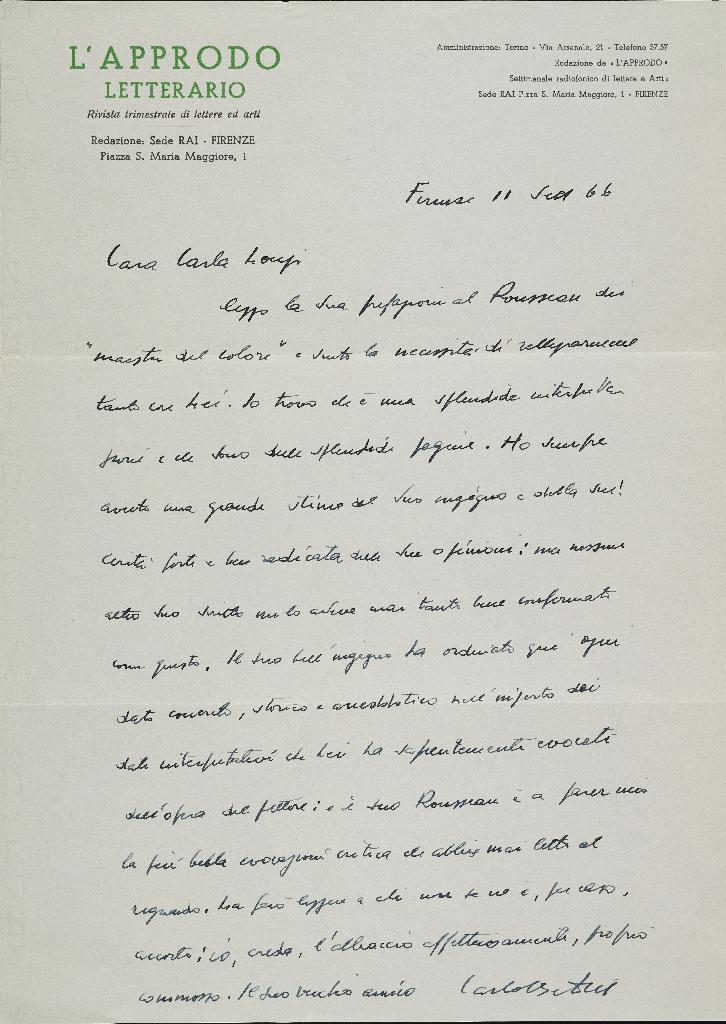 L'APPRODO
LETTERARIO
Rivista trimestrale di lettere ed arti
Redazione: Sede RAI - FIRENZE
Piazza S. Maria Maggiore, 1
Amministrazione: Torino - Via Arsenale, 21 - Telefono 57.57
Redazione de « L'APPRODO »
Settimanale radiofonico di lettere e Arti:
Sede RAI P.zza S. Maria Maggiore, 1 - FIRENZE
Firenze 11 Sett 66
Cara Carla Lonzi
leggo la Sua prefazione al Rousseau dei
"maestri del colore" e sento la necessità di rallegrarmene
tanto con Lei. Io trovo che è una splendida interpreta
zione e che sono delle splendide pagine. Ho sempre
avuto una grande stima del Suo ingegno e della sin
cerità forte e ben radicata delle Sue opinioni: ma nessun
altro Suo scritto me lo aveva mai tanto bene confermato
come questo. Il Suo bell'ingegno ha ordinato qui ogni
dato concreto, storico e aneddotico nell'
dati interpretativi che Lei ha sapientemente evocati
dell'opera del pittore: e il Suo Rousseau è a parer mio
la più bella evocazione critica che abbia mai letto al
riguardo. La farò leggere a chi non se ne è, per caso,
accorto; io, creda, l'abbraccio affettuosamente, proprio
commosso. Il Suo vecchio amico Carlo Betocchi